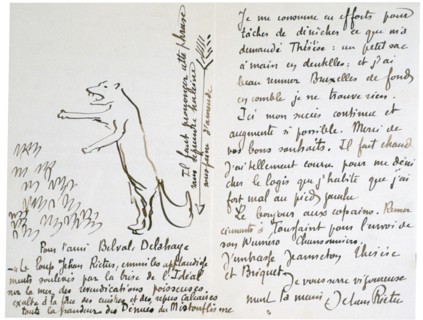 Il faut prononcer cette phrase
sans reprendre haleine
sous peine d'amende
Pour l'ami Belval-Delahaye
Le Loup Jehan Rictus, emmi les applaudisse
ments soulevés par la brise de l'Idéal
sur la mer des
exalte à la face des cuistres et des repus
toute la grandeur des Démos du Mistouflisme
Je me consume en efforts pour
tâcher de dénicher ce que m'a
demandé Thérèse : un petit sac
à main en dentelles ; et j'ai
beau remuer Bruxelles de fond
en comble je ne trouve rien.
Ici mon succès continue et
augmente si possible. Merci de
vos bons souhaits. Il fait chaud
J'ai tellement couru pour me déni
cher le logis que j'habite que j'ai
fort mal au pied
Le bonjour aux copains. Remer
ciements à Toussaint pour l'envoi de
son Numéro Chansonniers.
J'embrasse Jeannechon Thérèse
et Briquet.
Je vous serre vigoureuse
ment la main Jehan Rictus